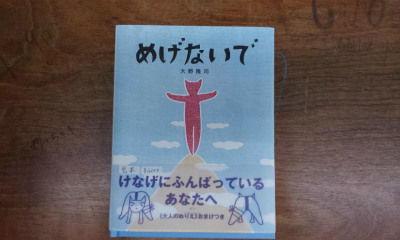 めげないで
大野隆司
けなげにふんばっている
あなたへ
《大人のぬりえ》おまけつき